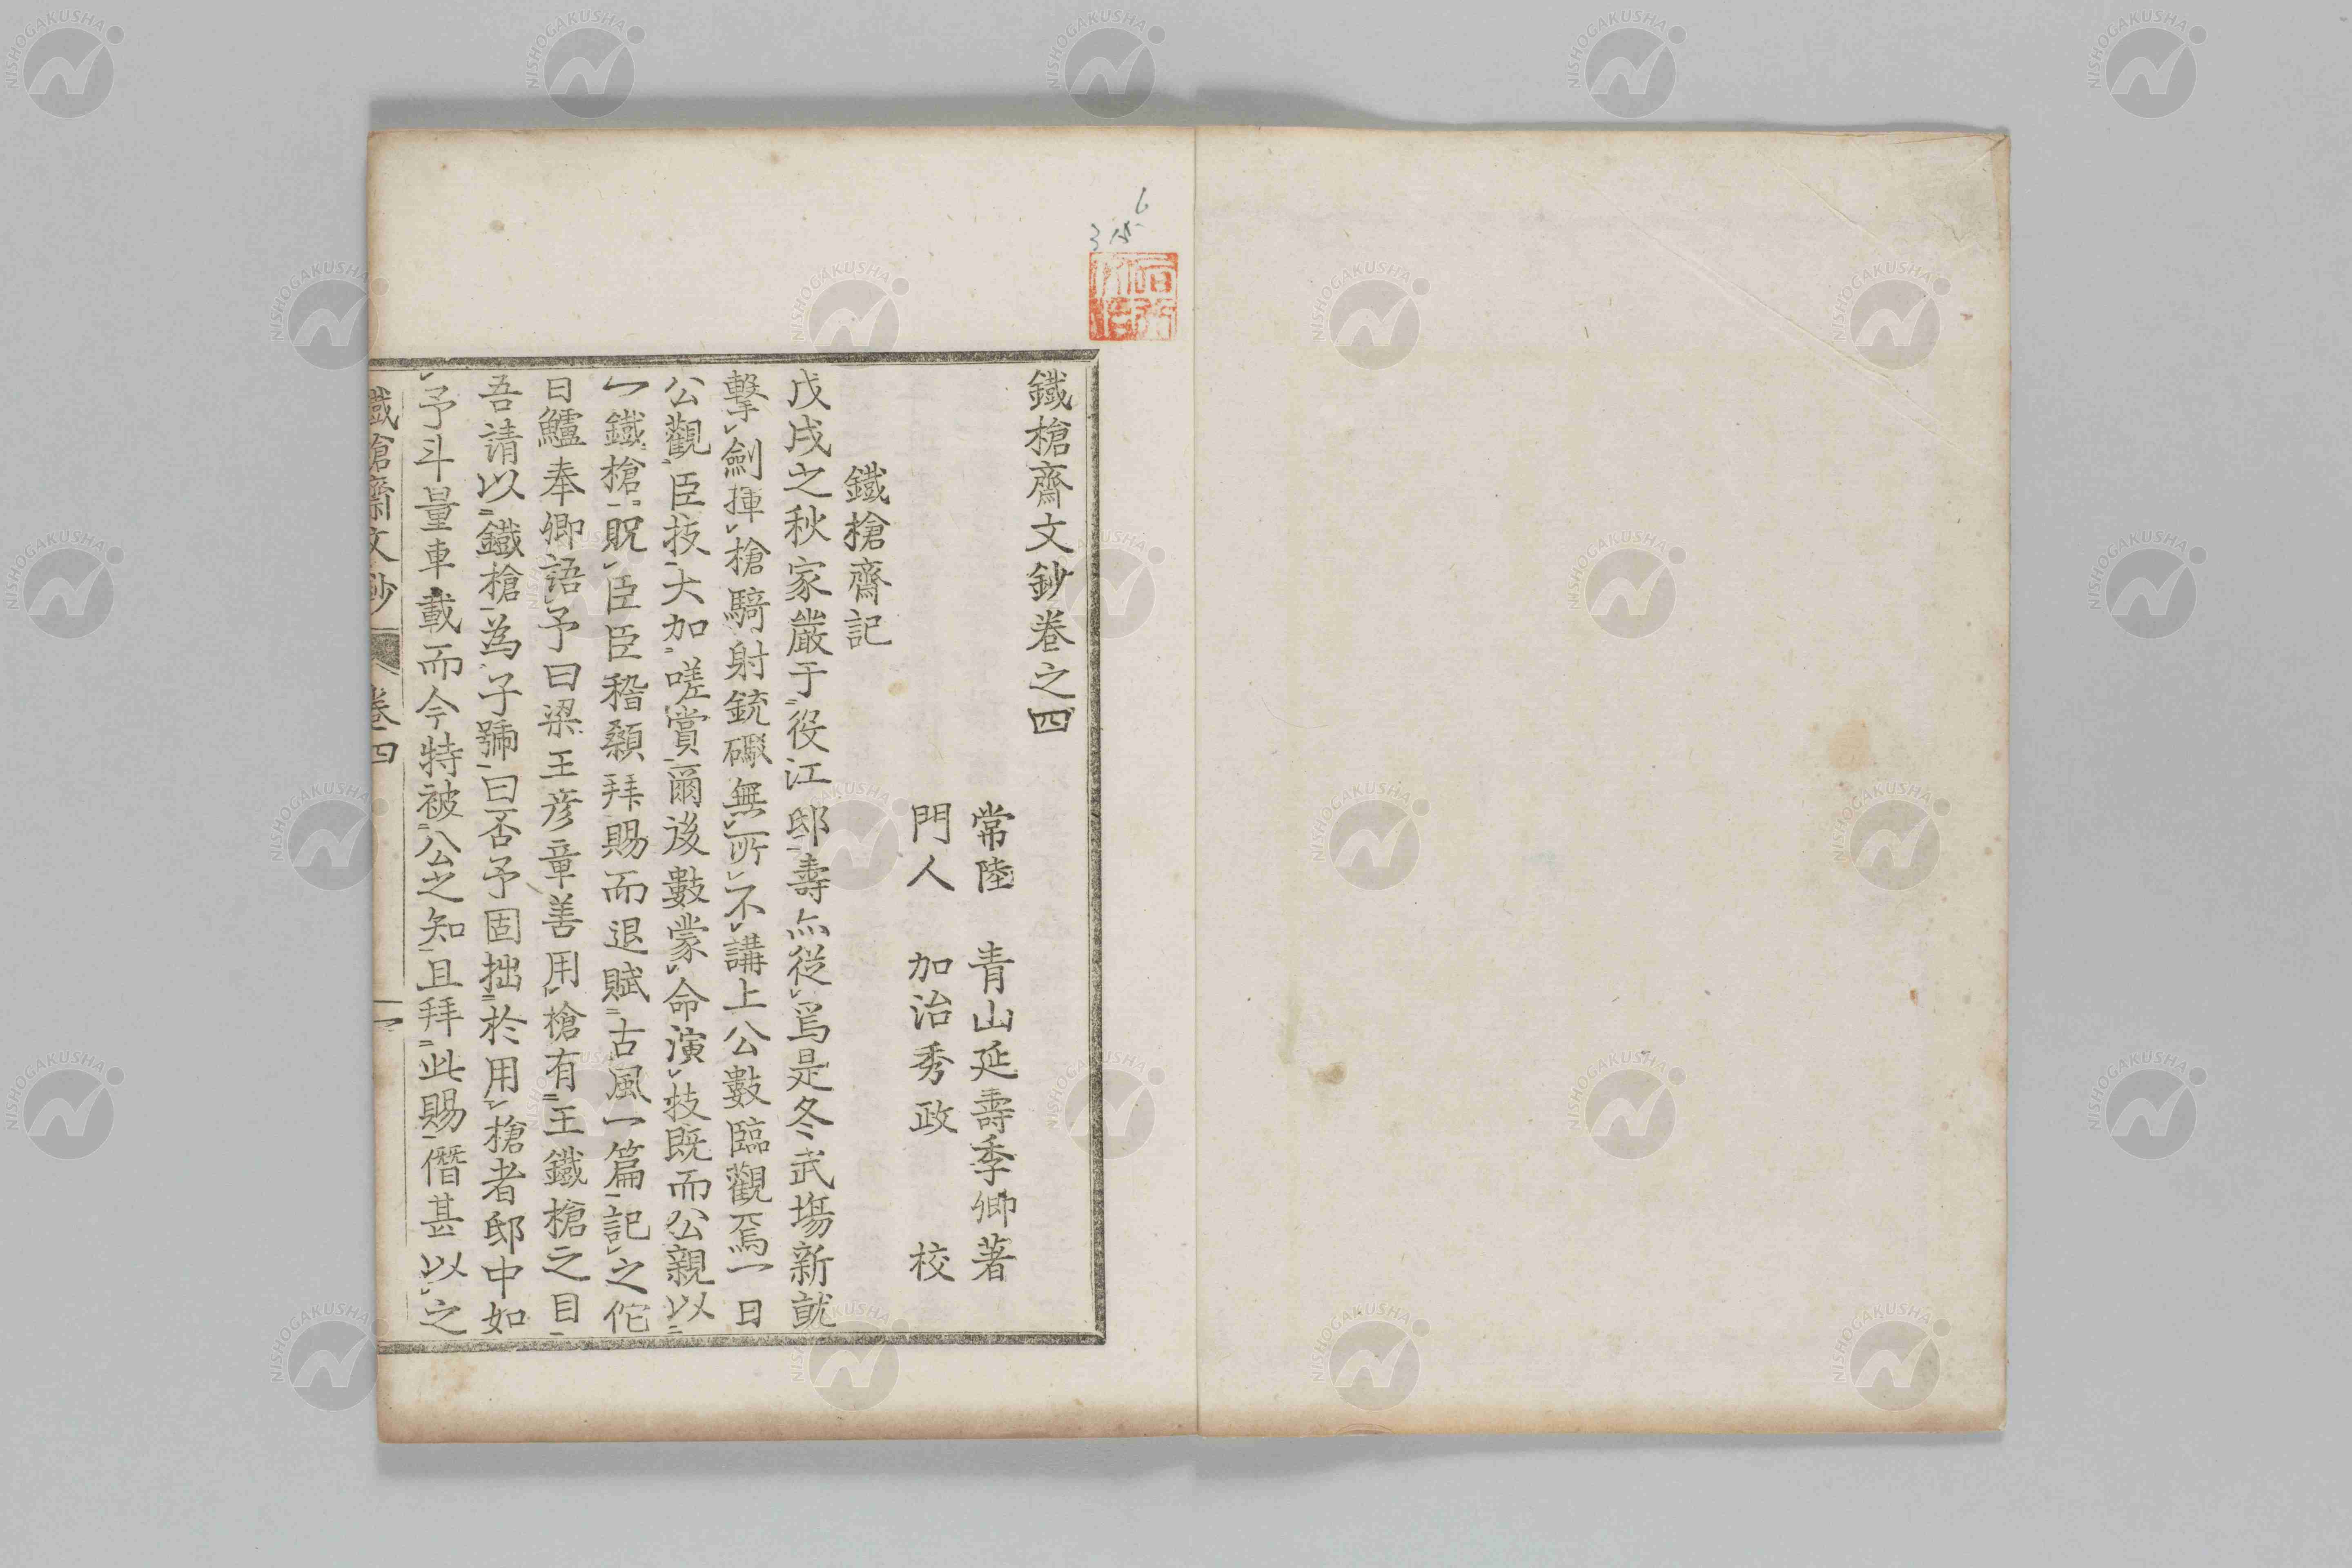 鐵槍齋文鈔卷之四
常陸 青山延壽季卿著
門人 加治秀政 校
鐵槍齋記
戊戌之秋家嚴于役江邸壽亦從焉是冬武塲新就
擊劍揮槍騎射銃礮無所不講上公數臨觀焉一日
公觀臣技大加嗟賞爾後數蒙命演技既而公親以
一鐵槍貺臣臣稽顙拜賜而退賦古風一篇記之佗
日鱸奉卿語予曰梁王彦章善用槍有王鐵槍之目
吾請以鐵槍為子號曰否予固拙於用槍者邸中如
予斗量車載而今特被公之知且拜此賜僭甚以之
鐵槍齋文鈔 卷四 一
NISHOGAKUSHA